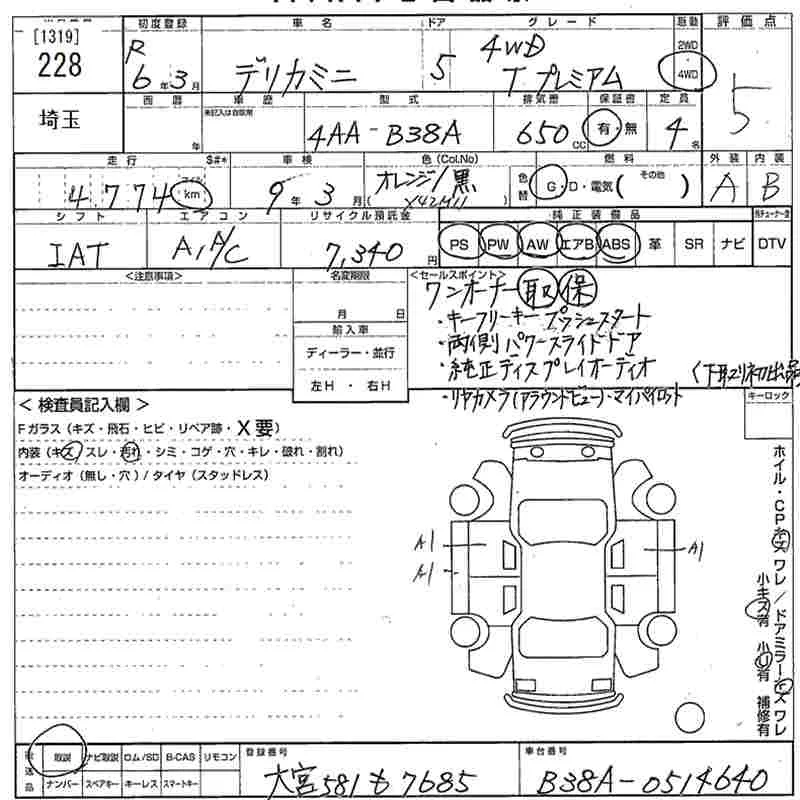 [1319]
228
埼玉
初度登録
R
6年3月
車名
デリカミニ
ドア
5
グレード
4WD
Tプレミアム
駆動
2WD
4WD
評価点
5
西暦
年
車歴
未記入は自家用
型式
4AA-B38A
排気量
650cc
保証書
有・無
定員
4名
走行
S#*
マイル
4774km
車検
9年3月
色(Col.No)
オレンジ/黒
(X42M11)
色替
燃料
G・D・電気(その他)
外装
A
内装
B
シフト
IAT
エアコン
A,A/C
リサイクル預託金
7,340円
純正装備品
PS PW AW エアB ABS 革 SR ナビ
DTV
<注意事項>
名変期限
月 日
輸入車
ディーラー・並行
左H・右H
<セールスポイント>
ワンオーナー 取 保
・キーフリーキー プッシュスタート
・両側パワースライドドア
・純正ディスプレイオーディオ
・リヤカメラ(アラウンドビュー)・マイパイロット
<下取り初出品
キーロック
<検査員記入欄>
Fガラス(キズ・飛石・ヒビ・リペア跡・X要)
内装(キズ/スレ・汚れ・シミ・コゲ・穴・キレ・破れ・割れ)
オーディオ(無し・穴)/タイヤ(スタッドレス)
A1
A1
A1
ホイル・CPキズ ワレ/ドアミラーキズ ワレ
小キズ有 小U有 補修有
後送品
取説 ナビ取説 ロム/SD B-CAS リモコン
ナンバー スペアキー キーレス スマートキー
登録番号
大宮581も7685
車台番号
B38A-0514640